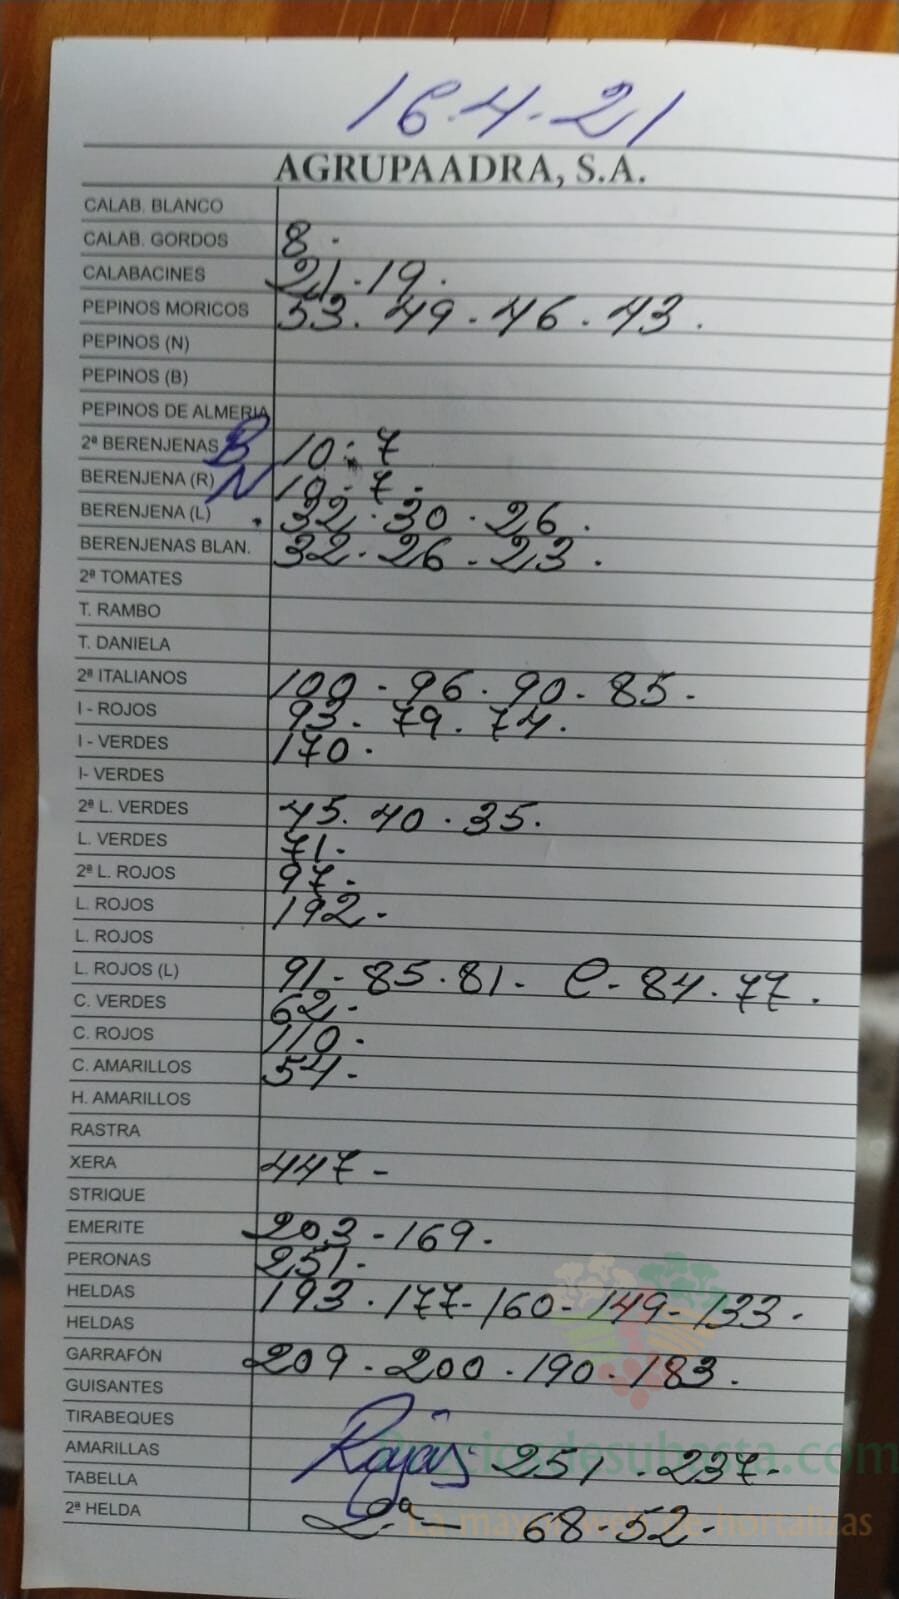 16.4.21
AGRUPAADRA, S.A.
CALAB. BLANCO
CALAB. GORDOS 8.
CALABACINES 21.19.
PEPINOS MORICOS 53. 49. 46. 43.
PEPINOS (N)
PEPINOS (B)
PEPINOS DE ALMERIA
2ª BERENJENAS B 10. 7
BERENJENA (R) N 10. 7.
BERENJENA (L) . 32. 30. 26.
BERENJENAS BLAN. 32. 26. 23.
2ª TOMATES
T. RAMBO
T. DANIELA
2ª ITALIANOS 100. 96. 90. 85.
I - ROJOS 93. 79. 74.
I - VERDES 170.
I- VERDES
2ª L. VERDES 45. 40. 35.
L. VERDES 71.
2ª L. ROJOS 97.
L. ROJOS 192.
L. ROJOS
L. ROJOS (L) 91- 85. 81- C- 84. 77.
C. VERDES 62.
C. ROJOS 110.
C. AMARILLOS 54.
H. AMARILLOS
RASTRA
XERA 447-
STRIQUE
EMERITE 203-169.
PERONAS 251.
HELDAS 193. 177-160-149-133.
HELDAS
GARRAFÓN 209. 200. 190. 183.
GUISANTES
TIRABEQUES
AMARILLAS Rojas 251. 237-
TABELLA
2ª HELDA 2ª- 68-52.
Preciosdesubasta.com
La mayor web de hortalizas